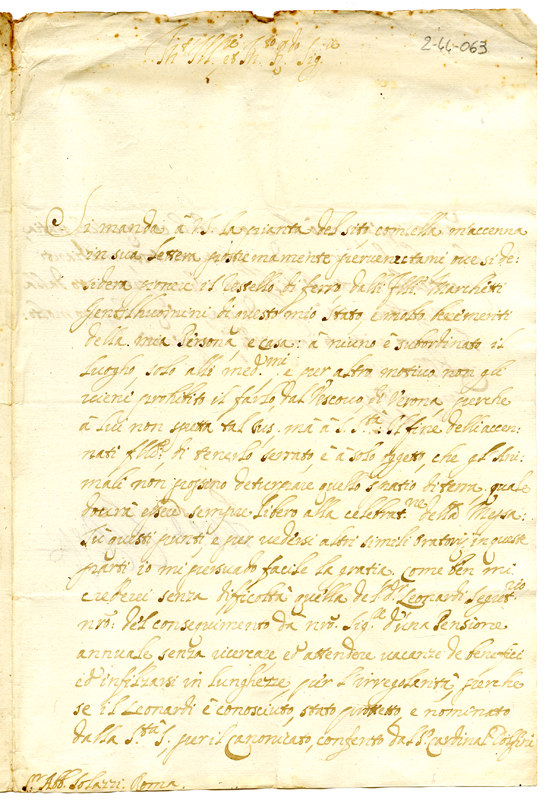 2-44-063
Si manda à V.S. la pianta del sito com'ella m'accenna
in sua lettera ultimamente pervenutami ove si de:
sidera porre il Rastello di ferro delli SS.ri Marchesi
Gentilhuomini di questo mio stato, e molto benemeriti
della mia Persona, e casa: à niuno è subordinato il
luogho, solo alli med.mi e per altro motivo non gli
viene prohibito il farlo dal Vescovo di Verona, perche
à lui non spetta tal Jus. mà à S. S.tà Il fine dell'accen:
nati di tenerlo serrato, è à solo ogeto, che gl'Ani:
mali non possino deturpare quello spatio di terra, quale
dovrà essere sempre libero alla celebrat.ne della Messa:
Sù questi punti, e per vedersi altri simili Oratorij in queste
parti io mi persuado facile la gratia, come ben mi
crederei senza dificoltà quella del Leonardi
nro: del conseguimento dà nro. Sig.re d'una Pensione
annuale senza ricercare, ed attendere vacanze de benefici
ed infilzarsi in lunghezze per l'irregolarità perche
se il Leonardi è conosciuto, stato protetto, e nominato
dalla S.tà S. per il Canonicato, conferito dal S.r Cardinal Delfini
S.r Abb. Solazzi. Roma.